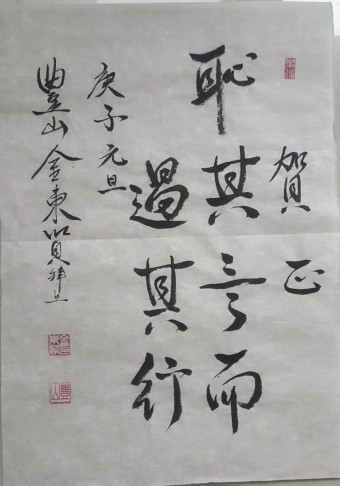 賀正
恥其言而
過其行
庚子元旦
豊山金東賢拜上